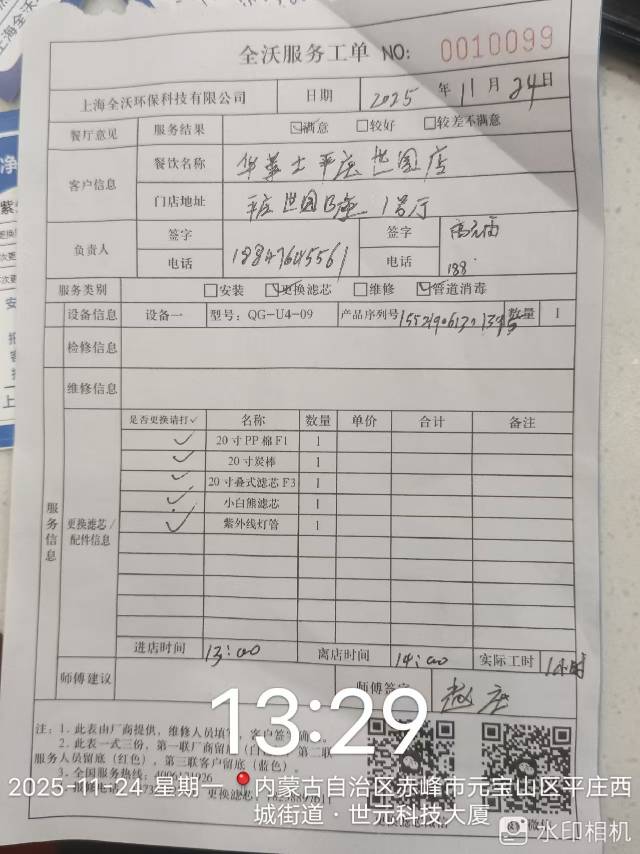 全沃服务工单 NO: 0010099
上海全沃环保科技有限公司 日期 2025 年 11 月 24 日
餐厅意见 服务结果 ☑满意 ☐较好 ☐较差不满意
客户信息 餐饮名称 华莱士平庄世园店
门店地址 平庄世园B座 1号厅
负责人 签字 签字
电话 18847645561 电话 188
服务类别 ☐安装 ☑更换滤芯 ☐维修 ☑管道消毒
设备信息 设备一 型号: QG-U4-09 产品序列号 数量 1
检修信息
维修信息
服务信息
更换滤芯/配件信息
是否更换请打✓ 名称 数量 单价 合计 备注
✓ 20寸PP棉F1 1
✓ 20寸炭棒 1
✓ 20寸叠式滤芯F3 1
✓ 小白熊滤芯 1
✓ 紫外线灯管 1
进店时间 13:00 离店时间 14:00 实际工时 1小时
师傅建议 师傅签字
注: 1. 此表由厂商提供, 维修人员填写, 客户签字确
2. 此表一式三份, 第一联厂商留底 第二联
服务人员留底(红色), 第三联客户留底(蓝色)。
3. 全国服务热线:
更换滤芯:
13:29
2025-11-24 星期一 内蒙古自治区赤峰市元宝山区平庄西
城街道·世元科技大厦
水印相机